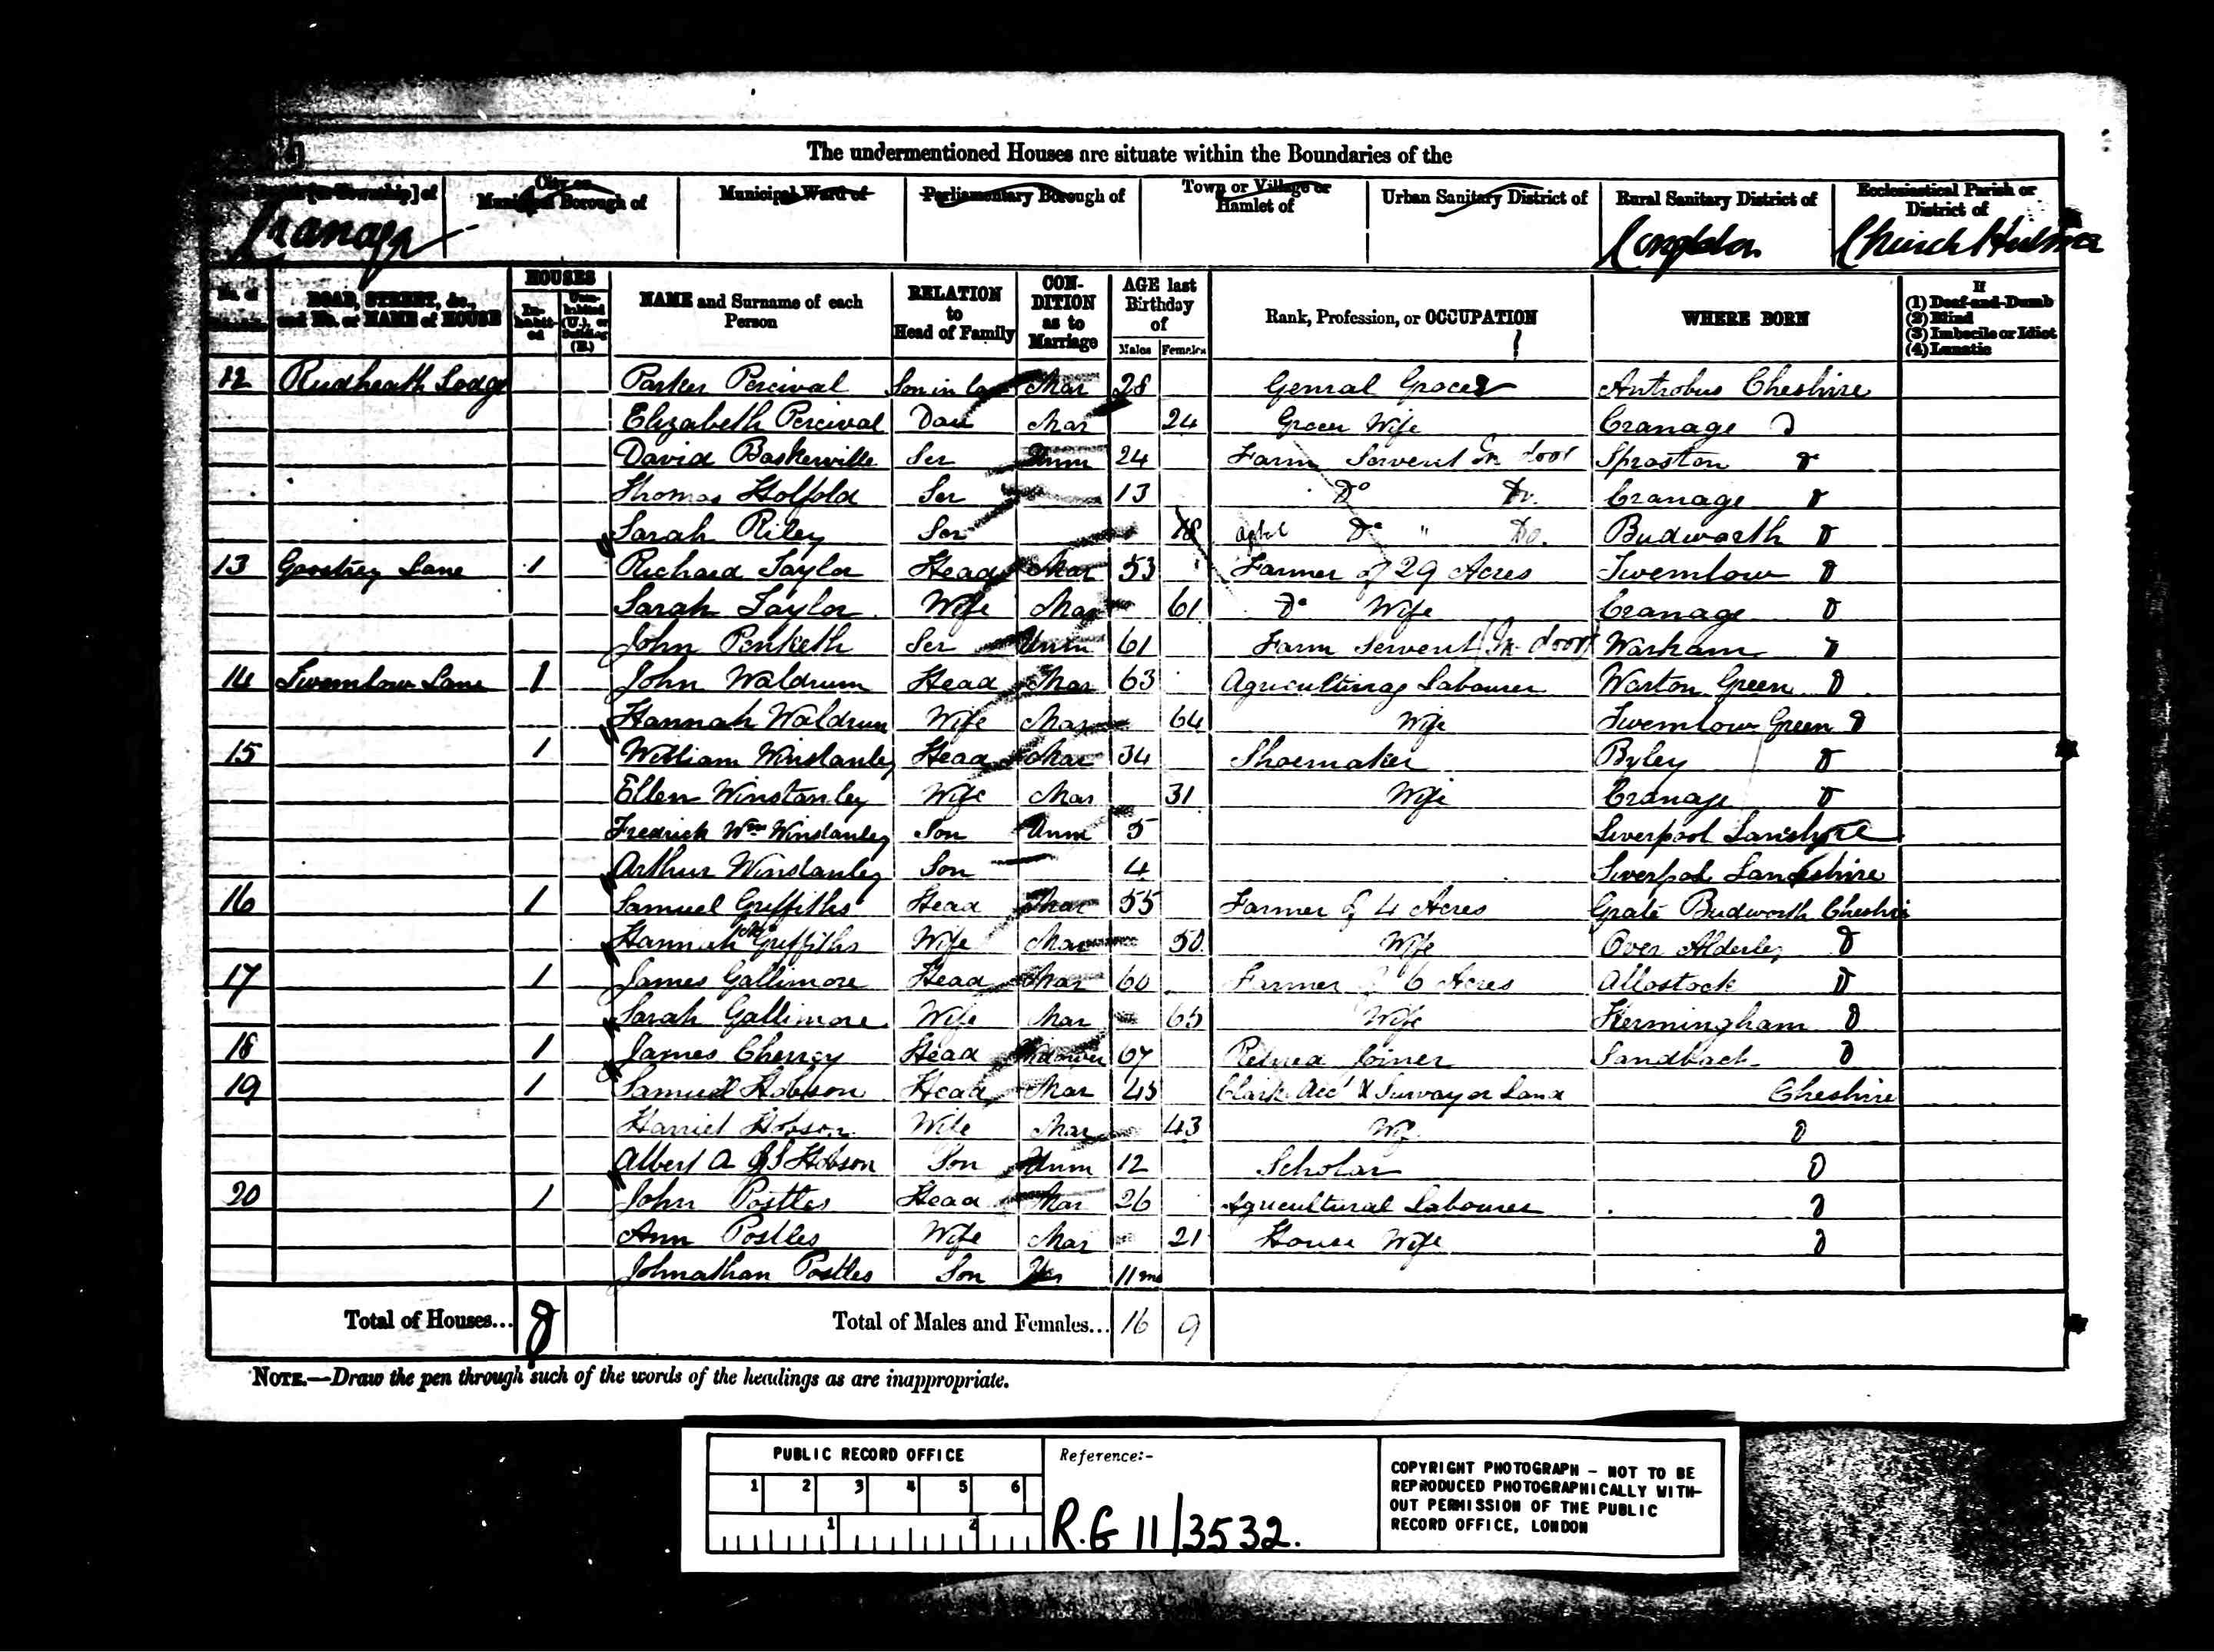 The undermentioned Houses are situate within the Boundaries of the
[or Township] of
City or Municipal Borough of
Municipal Ward of
Parliamentary Borough of
Town or Village or Hamlet of
Urban Sanitary District of
Rural Sanitary District of
Ecclesiastical Parish or District of
Cranage Congleton Church Hulme
No. of
ROAD, STREET, &c., and No. or NAME of HOUSE
HOUSES
In-habit-ed
Unin-habited (U.), or Building (B.)
NAME and Surname of each Person
RELATION to Head of Family
CON-DITION as to Marriage
AGE last Birthday of
Males Females
Rank, Profession, or OCCUPATION
WHERE BORN
If
(1) Deaf-and-Dumb
(2) Blind
(3) Imbecile or Idiot
(4) Lunatic
12 Rudheath Lodge Parker Percival Son in law Mar 28 Genral Grocer Antrobus Cheshire
Elizabeth Percival Dau Mar 24 Grocer Wife Cranage Do
David Baskerville Ser Unm 24 Farm Servent In door Sproston Do
Thomas Holfold Ser 13 Do Do. Cranage Do
Sarah Riley Ser 18 Do " Do. Budworth Do
13 Goostrey Lane 1 Richard Taylor Head Mar 53 Farmer of 29 Acres Twemlow Do
Sarah Taylor Wife Mar 61 Do Wife Cranage Do
John Penketh Ser Unm 61 Farm Servent (In door) Warham Do
14 Twemlow Lane 1 John Waldrum Head Mar 63 Agricultural Labourer Warton Green Do
Hannah Waldrum Wife Mar 64 Wife Twemlow Green Do
15 1 William Winstanley Head Mar 34 Shoemaker Byley Do
Ellen Winstanley Wife Mar 31 Wife Cranage Do
Fredrick Wm Winstanley Son Unm 5 Liverpool
Arthur Winstanley Son 4 Liverpool Lancashire
16 1 Samuel Griffiths Head Mar 55 Farmer of 4 Acres Grate Budworth Cheshire
Hannah Griffiths Wife Mar 50 Wife Over Alderley Do
17 1 James Gallimore Head Mar 60 Farmer of 6 Acres Allostock Do
Sarah Gallimore Wife Mar 65 Wife Hermingham Do
18 1 James Cherrey Head Widower 67 Retired Joiner Sandbach Do
19 1 Samuel Hobson Head Mar 45 Clark Acct & Survayor Land Cheshire
Harriet Hobson Wife Mar 43 Wife Do
Albert A Hobson Son Unm 12 Scholar Do
20 1 John Postles Head Mar 26 Agricultural Labourer Do
Ann Postles Wife Mar 21 House Wife Do
Johnathan Postles Son 11 mo
Total of Houses... 8 Total of Males and Females... 16 9
NOTE.—Draw the pen through such of the words of the headings as are inappropriate.
PUBLIC RECORD OFFICE
1 2 3 4 5 6
1 2
Reference:-
R.G 11/3532.
COPYRIGHT PHOTOGRAPH - NOT TO BE
REPRODUCED PHOTOGRAPHICALLY WITH-
OUT PERMISSION OF THE PUBLIC
RECORD OFFICE, LONDON